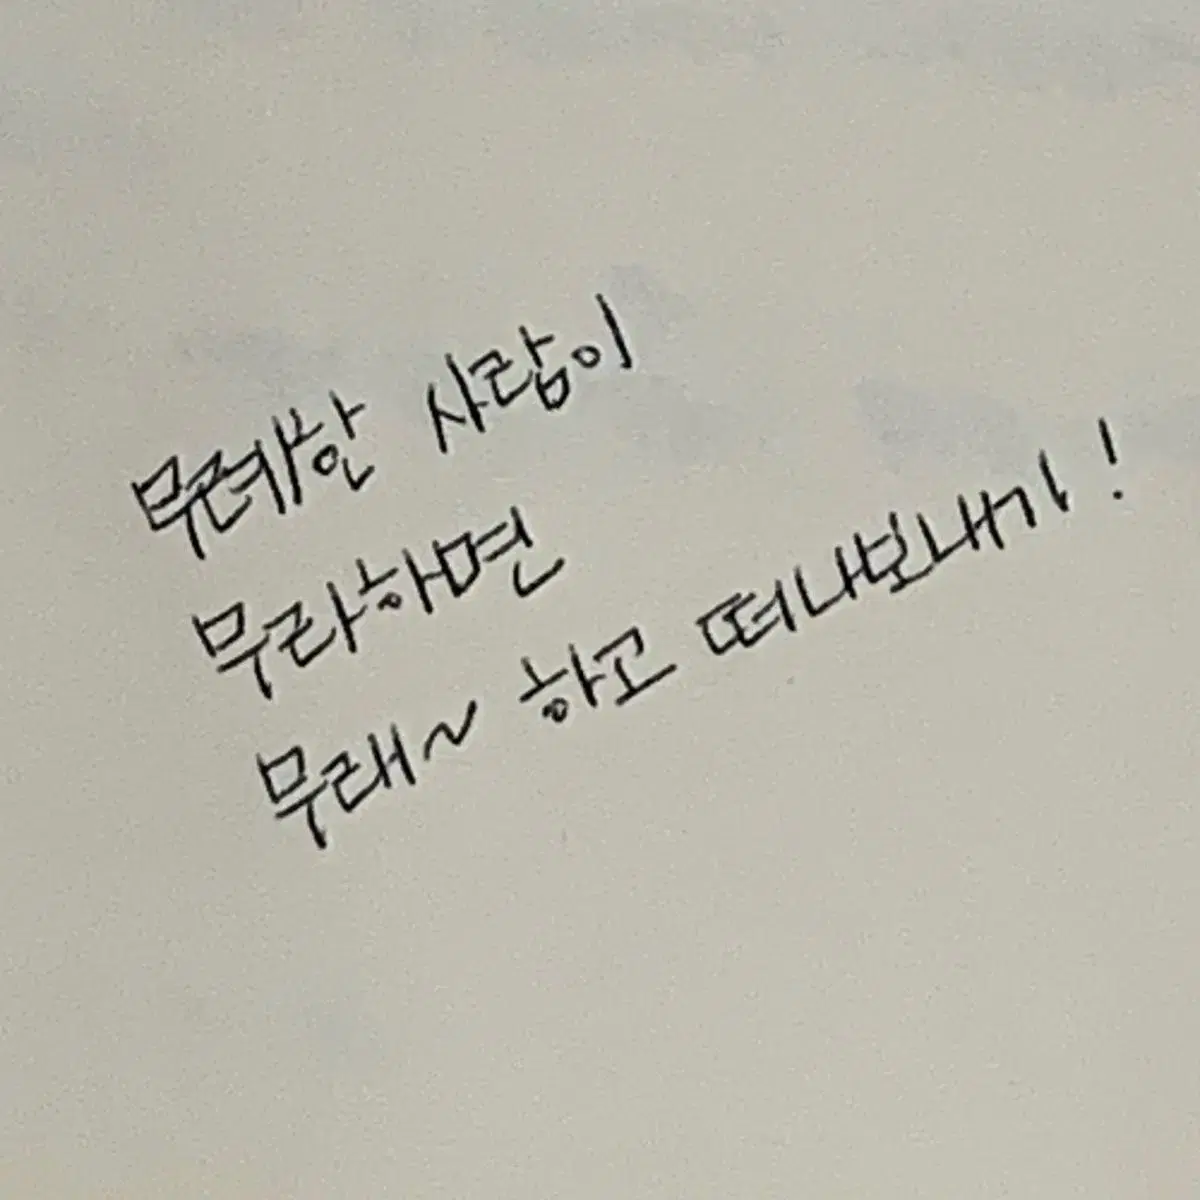 무례한 사람이
무라하면
무래~ 하고 떠나보내기!